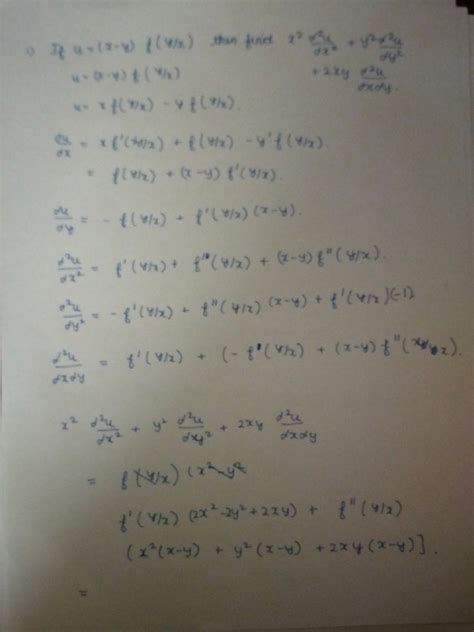 1) If u = (x-y) f(y/x) then find x² d²u/dx² + y² d²u/dy² + 2xy d²u/dxdy.
u = (x-y) f(y/x)
u = x f(y/x) - y f(y/x).
du/dx = x f'(y/x) + f(y/x) - y' f(y/x).
= f(y/x) + (x-y) f'(y/x).
du/dy = - f(y/x) + f'(y/x) (x-y).
d²u/dx² = f'(y/x) + f'(y/x) + (x-y) f''(y/x).
d²u/dy² = - f'(y/x) + f''(y/x) (x-y) + f'(y/x)(-1)
d²u/dxdy = f'(y/x) + (- f'(y/x) + (x-y) f''(y/x).
x² d²u/dx² + y² d²u/dy² + 2xy d²u/dxdy
= f(y/x) (x²-y²
f'(y/x) (2x²-2y²+2xy) + f''(y/x)
(x²(x-y) + y²(x-y) + 2xy(x-y)].
=